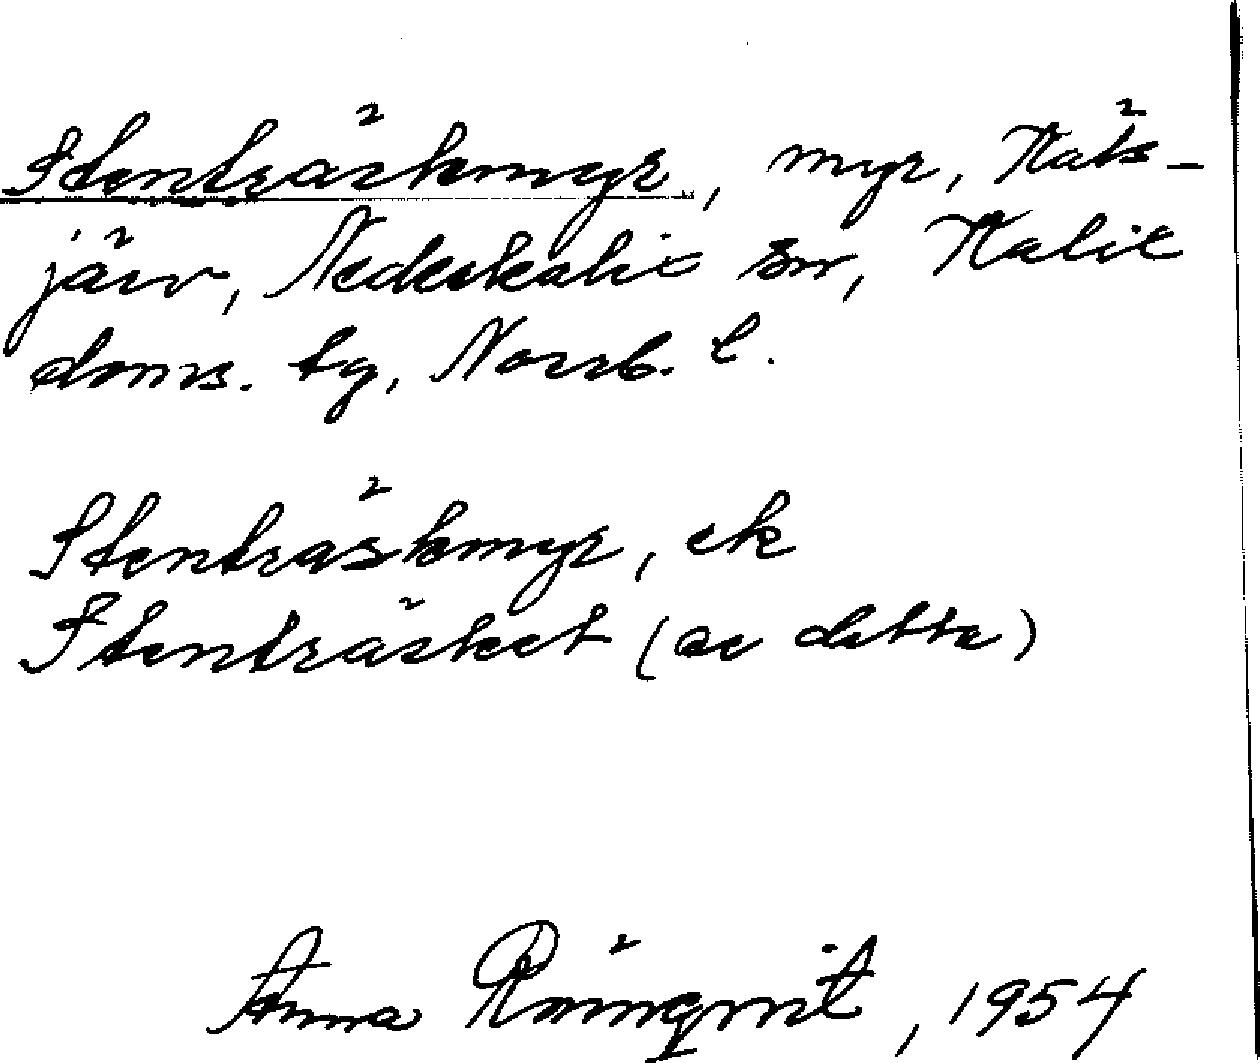 Stenträskmyr, myr, Räts-
järv, Nederkalix sn, Kalix
doms. tg, Norrb. l.
Stenträskmyr, ek
Stenträsket (se detta)
Anna Rönnqvist, 1954